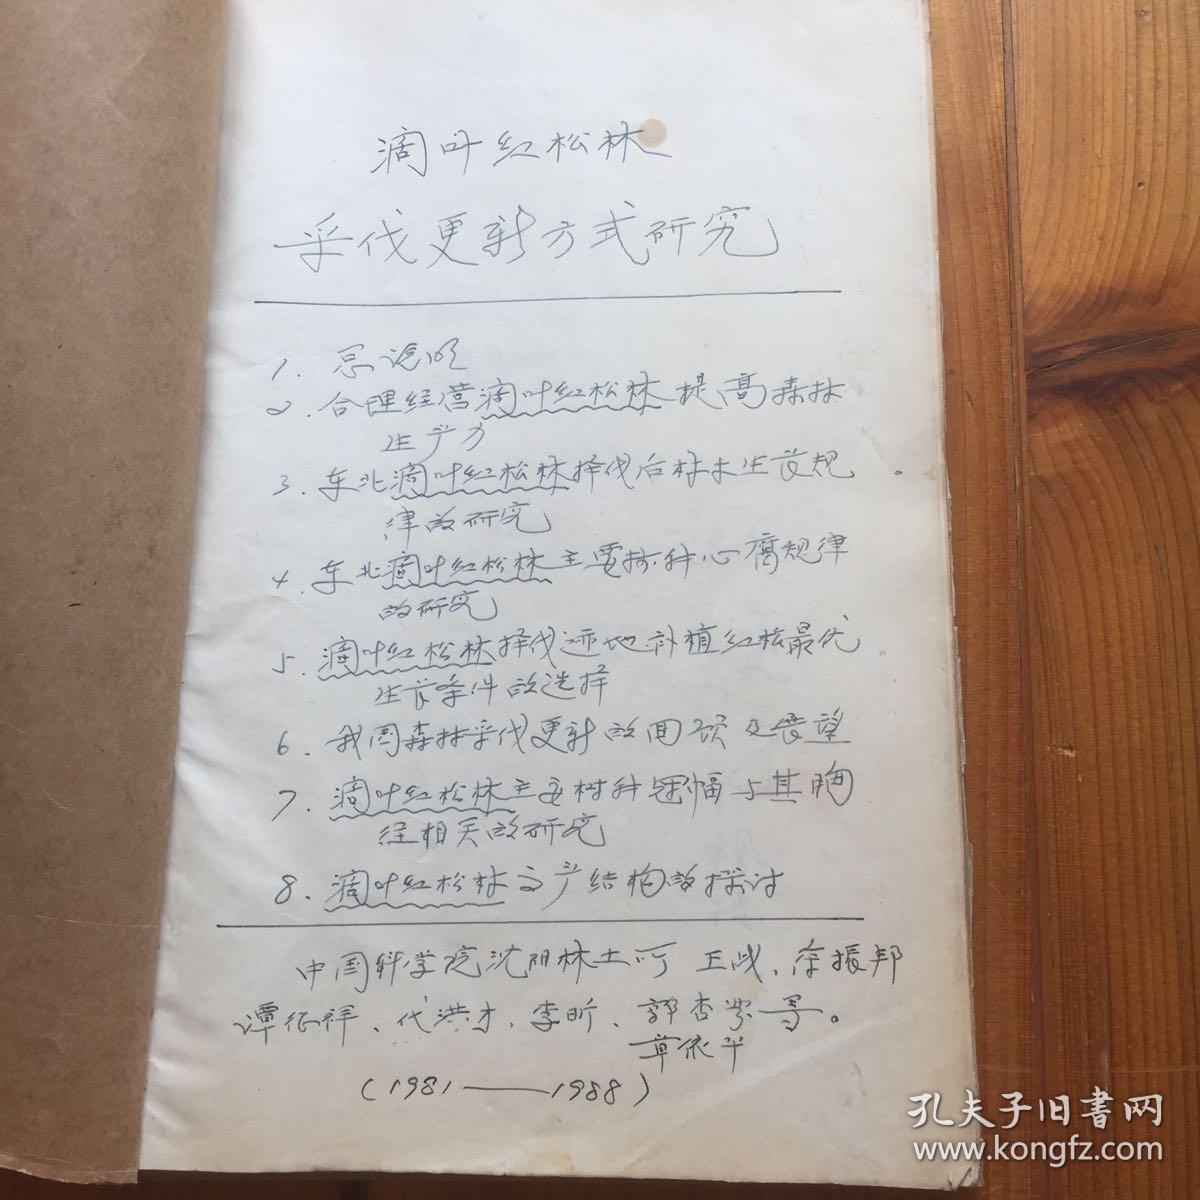 阔叶红松林
采伐更新方式研究
1. 总说明
2. 合理经营阔叶红松林提高森林
生产力
3. 东北阔叶红松林择伐后林木生长规
律的研究
4. 东北阔叶红松林主要树种心腐规律
的研究
5. 阔叶红松林择伐迹地补植红松最优
生长条件的选择
6. 我国森林采伐更新的回顾及展望
7. 阔叶红松林主要树种冠幅与其胸
径相关的研究
8. 阔叶红松林立产结构的探讨
中国科学院沈阳林土所 王战、徐振邦
谭征祥、代洪才、李昕、郭杏芬等。
章依平
(1981——1988)
孔夫子旧書网
www.kongfz.com